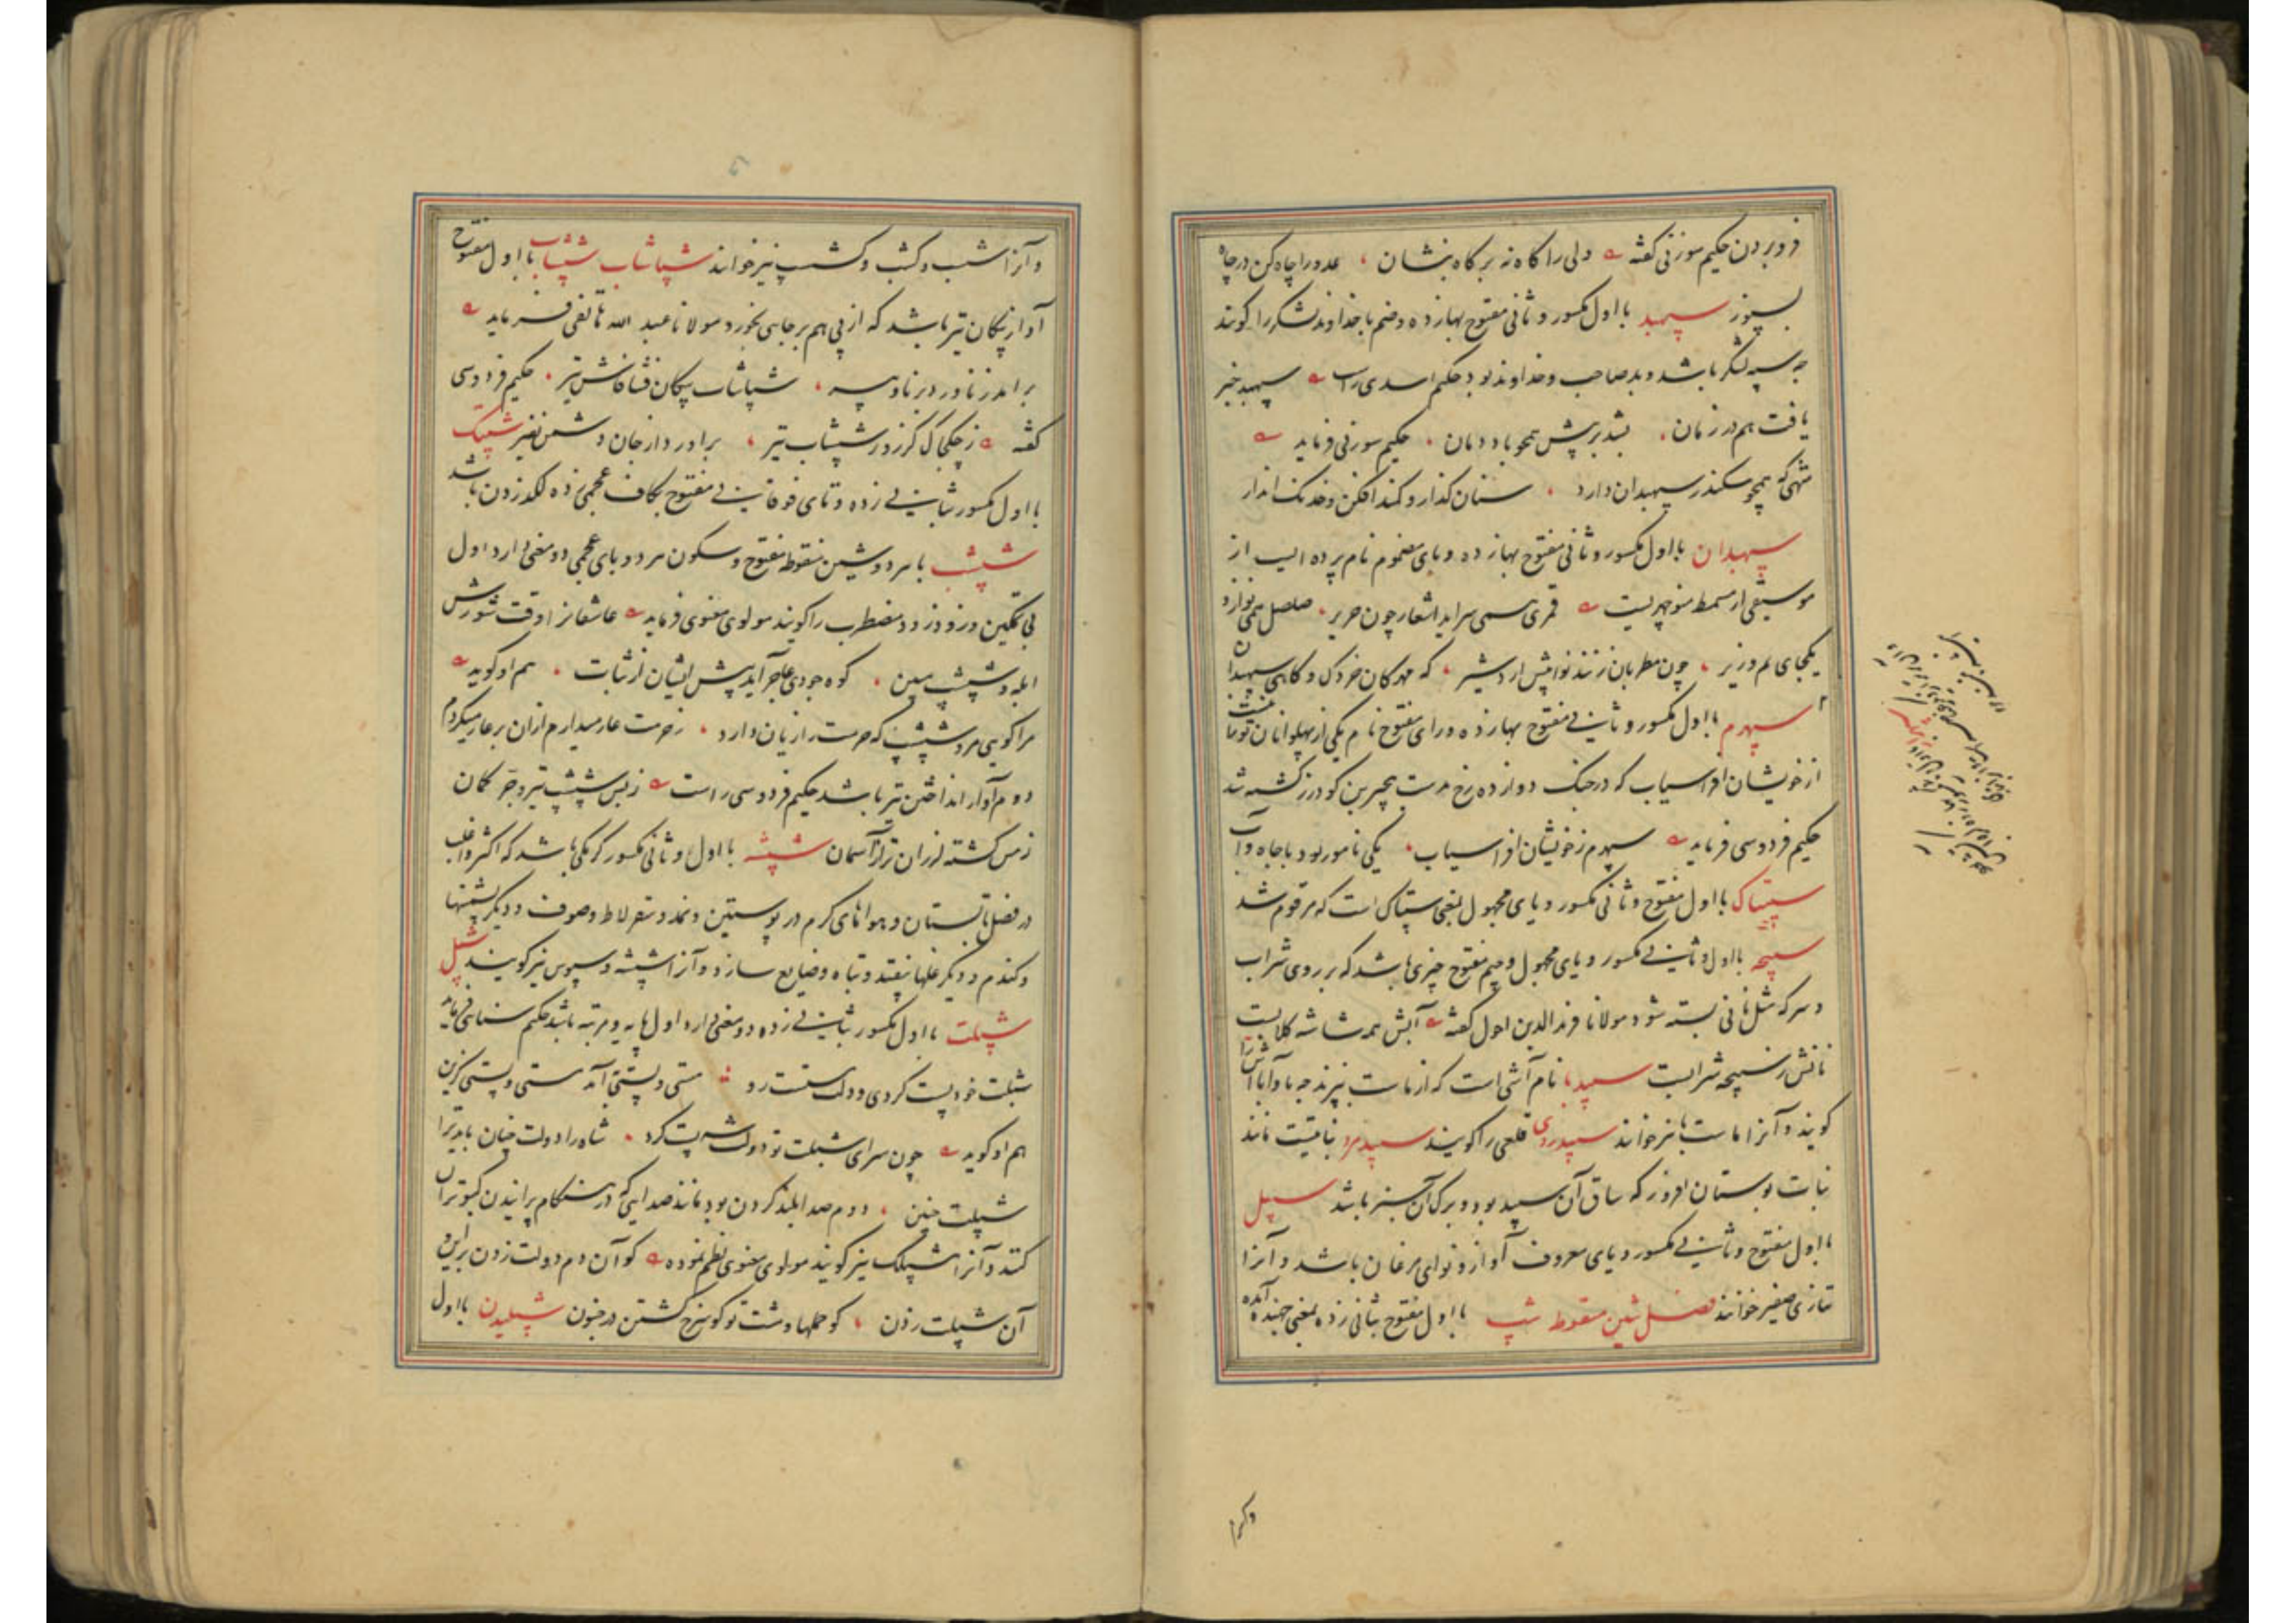 فروبردن حکیم سوزنی گفته ولی را گاه نه بر گاه بنشان عدو را چاه کن در چاه
بسپوز سپهبد با اول مکسور و ثانی مفتوح بهازده و ضم با خداوند لشکر را گویند
چه سپه لشکر باشد و بد صاحب و خداوند بود حکیم اسدی راست سپهبد خبر
یافت هم در زمان بشد برپیش همچو باد دمان حکیم سوزنی فرماید
شهی که همچو سکندر سپهبدان دارد سنان گذار و کمند افکن و خدنک انداز
سپهبدان با اول مکسور و ثانی مفتوح بهازده و بای مضموم نام پرده ایست از
موسیقی از مسمط منوچهریست قمری همی سراید اشعار چون حریر صلصل همی نوازد
یکجای بم و زیر چون مطربان زنند نوا پیش اردشیر که مهرکان خردک و گاهی سپهبدان
سپهرم با اول مکسور و ثانی مفتوح بهازده و رای مفتوح نام یکی از پهلوانان تورانست
از خویشان افراسیاب که در جنک دوازده رخ بدست هجیر بن کودرز کشته شد
حکیم فردوسی فرماید سپهرم ز خویشان افراسیاب یکی نامور بود با جاه و آب
سپیتاک با اول مفتوح و ثانی مکسور و یای مجهول بمعنی سپتاک است که مرقوم شد
سپیجه با اول و ثانی مکسور و یای مجهول و جیم مفتوح چیزی باشد که بر روی شراب
و سرکه مثل نانی بسته شود مولانا فرید الدین احول گفته آبش همه شاشه کلابست
نانش ز سپیجه شرابست سپیدبا نام آشی است که از ماست پزند چه با و ابا آش را
گویند و آنرا ماست با نیز خوانند سپیدروی قلعی را گویند سپیدمرد نباتیست مانند
نبات بوستان افروز که ساق آن سپید بود و برک آن سبز باشد سپیل
با اول مفتوح و ثانی مکسور و یای معروف آواز و نوای مرغان باشد و آنرا
بتازی صفیر خوانند فصل شین منقوط شپ با اول مفتوح بثانی زده بمعنی جهنده آمده
وآنرا
و آنرا شب و کشب و کشسپ نیز خوانند شپاشاب شپشاب با اول مفتوح
آواز پیکان تیر باشد که از پی هم بر جای بخورد مولانا عبد الله هاتفی فرماید
شپاشاب پیکان حکیم فردوسی
گفته ز چکچاک کرز و ز شپشاب تیر برآورد از جان دشمن نفیر شپتک
با اول مکسور بثانی زده و تای فوقانی مفتوح بکاف عجمی زده لکد زدن باشد
شپشپ با هر دو شین منقوطه مفتوح و سکون هر دو بای عجمی دو معنی دارد اول
بی تمکین و زود زود و مضطرب را گویند مولوی معنوی فرماید عاشقانرا وقت شورش
ابله و شپشپ مبین کوه جودی عاجز آید پیش ایشان از ثبات هم او گوید
مرا گویی مرو شپشپ که حرمت را زیان دارد ز حرمت عار میدارم ازان بر عار میگردم
دوم آواز انداختن تیر باشد حکیم فردوسی راست ز بس شپشپ تیر و جر کمان
زمین گشته لرزان تر از آسمان شپشه با اول و ثانی مکسور کرمکی باشد که اکثر و اغلب
در فصل تابستان و هواهای گرم در پوستین و نمد و سقرلاط و صوف و دیگر پشمینها
و گندم و دیگر غلها بیفتد و تباه و ضایع سازد و آنرا شپشه و سپوس نیز گویند شپل
شپلت با اول مکسور بثانی زده دو معنی دارد اول پایه و مرتبه باشد حکیم سنایی فرماید
شپلت خود پست کردی و دولت سست رو مستی و پستی آمد سستی و پستی گزین
هم او گوید چون سرای شپلت تو دولت شه پست کرد شاه را دولت چنان باید ترا
شپلت چنین دوم صدا بلند کردن بود مانند صدایی که در هنگام پرانیدن کبوتران
کنند و آنرا شپلک نیز گویند مولوی معنوی نظم نموده کو آن دم دولت زدن بر این و
آن شپلت زدن کو حملها و مشت تو کو سرخ گشتن در جنون شپلیدن با اول